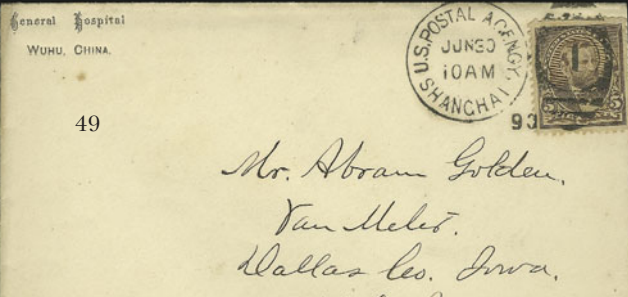 General Hospital
WUHU, CHINA.
U.S. POSTAL AGENCY,
JUN 30
10 AM
SHANGHAI
93
1
5 5
49
Mr. Abram Golden.
Van Meter.
Dallas Co. Iowa.